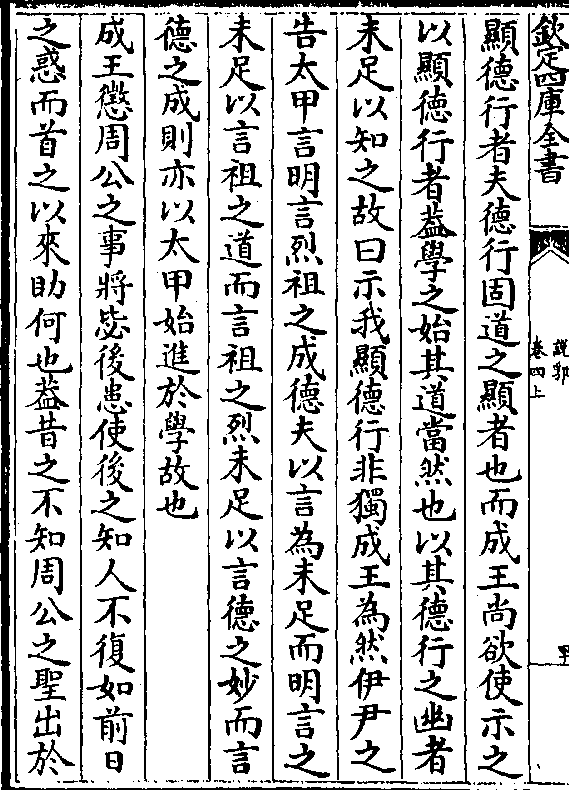 欽定四庫全書
說郛
卷四上
顯德行者夫德行固道之顯者也而成王尚欲使示之
以顯德行者葢學之始其道當然也以其德行之幽者
未足以知之故曰示我顯德行非獨成王為然伊尹之
告太甲言明言烈祖之成德夫以言為未足而明言之
未足以言祖之道而言祖之烈未足以言德之妙而言
德之成則亦以太甲始進於學故也
成王懲周公之事將毖後患使後之知人不復如前日
之惑而首之以來助何也葢昔之不知周公之聖出於